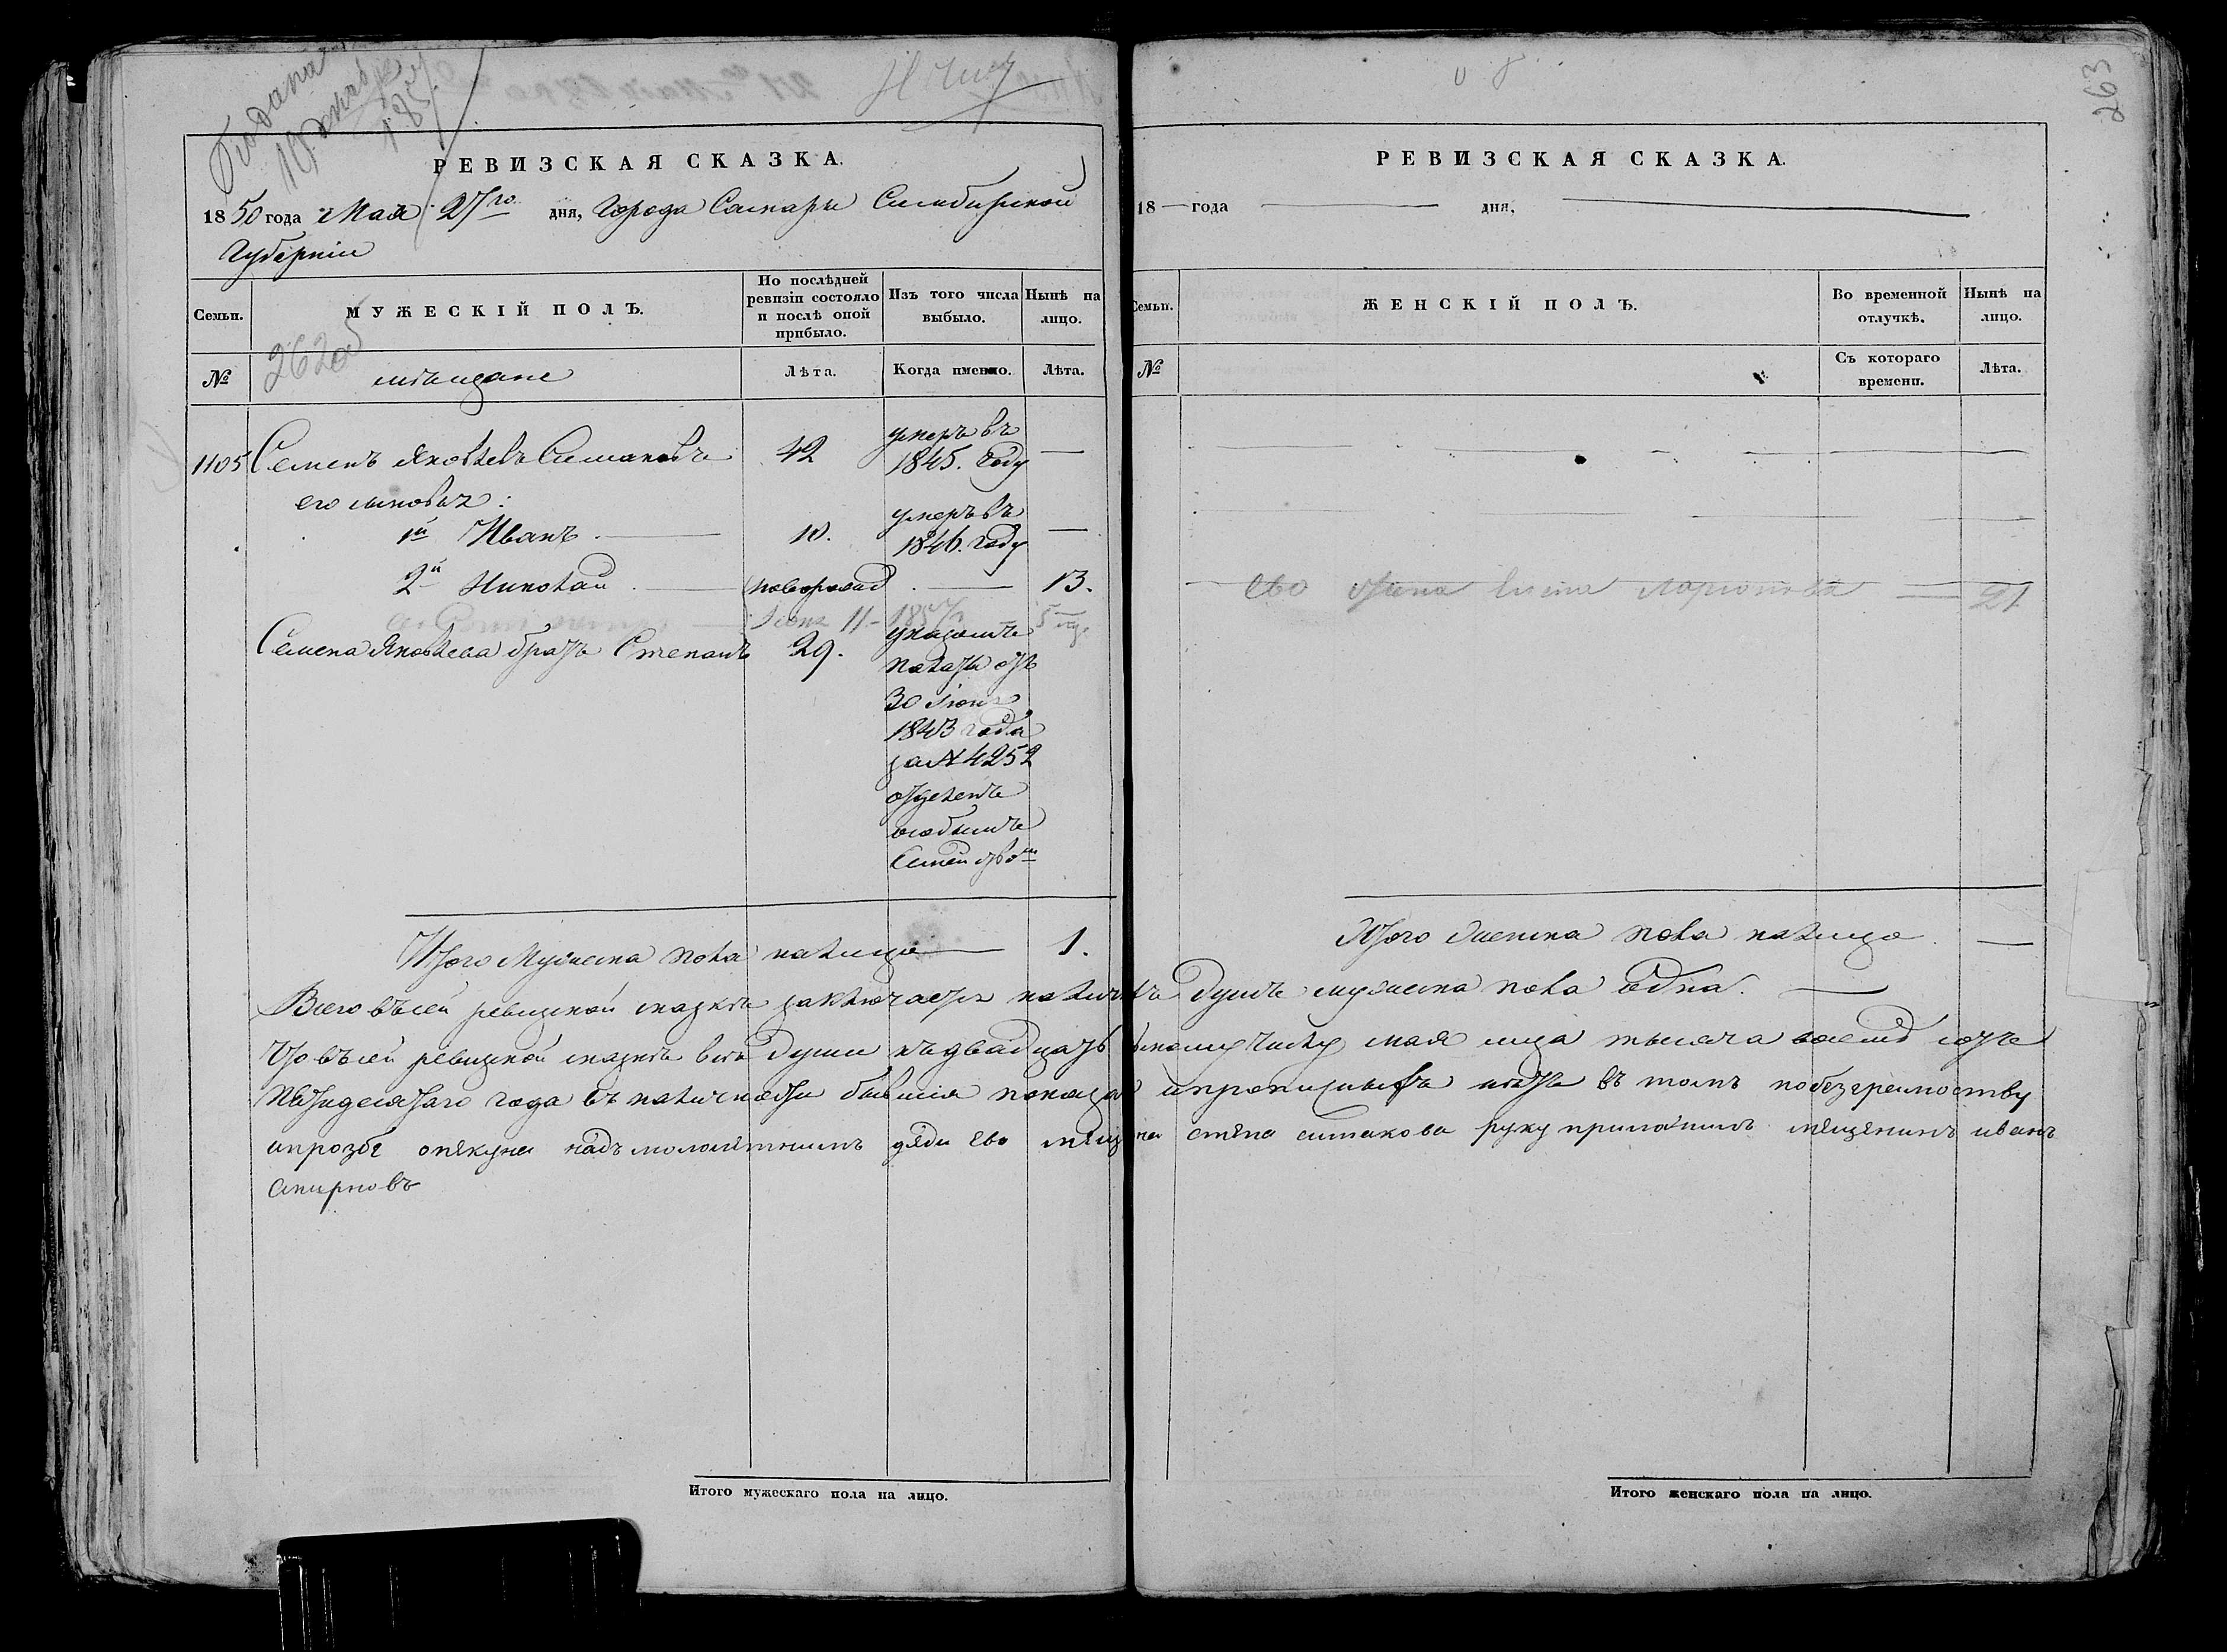 Подана
185
РЕВИЗСКАЯ СКАЗКА.
1850 года Мая 27го дня, Города Самары Симбирской
Губерніи
Семьи.
МУЖЕСКІЙ ПОЛЪ.
По послѣдней ревизіи состояло и послѣ оной прибыло.
Изъ того числа выбыло.
Нынѣ на лицо.
№
262об
мѣщане
Лѣта.
Когда именно.
Лѣта.
1105 Семенъ Яковлевъ Симаковъ 42 умеръ въ 1845. году —
его сыновья:
1й Иванъ — 10. умеръ въ 1846. году —
2й Николай — новорожд — 13.
11 - 185
Семена Яковлева братъ Степанъ 29. указомъ
палаты отъ
30 Іюня
1843 года
за № 4252
отделенъ
особымъ
Семействомъ
Итого Мужеска пола налицо — 1.
263
РЕВИЗСКАЯ СКАЗКА.
18 — года — дня, —
Семьи.
ЖЕНСКІЙ ПОЛЪ.
Во временной отлучкѣ.
Нынѣ на лицо.
№
Съ котораго времени.
Лѣта.
ево жена Ларионова — 21
Итого Женска пола налицо —
Всего въ сей ревизской сказкѣ заключается наличныхъ душъ мужеска пола одна. —
Что въ сей ревизской сказке все души къ двадцать Мая мца тысяча восемь сотъ
пятидесятаго года въ наличности бывшия показаны и прописныхъ нѣтъ въ томъ побезграмоству
ипрозбе опякуна надъ молалѣтнимъ дяди ево мящанина стяпа симакова руку приложилъ мящянинъ иванъ
Смирновъ
Итого мужескаго пола на лицо.
Итого женскаго пола на лицо.